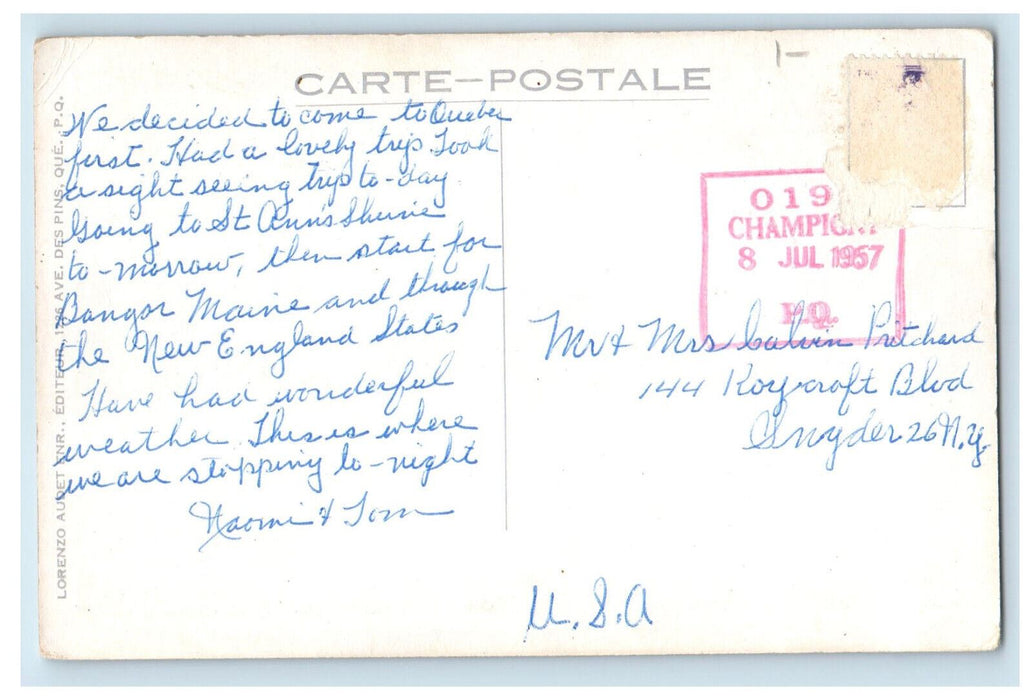 CARTE-POSTALE
We decided to come to Quebec
first. Had a lovely trip. Took
a sight seeing trip to-day
Going to St Ann's Shrine
to-morrow, then start for
Bangor Maine and through
the New England States
Have had wonderful
weather. This is where
we are stopping to-night
Naomi & Tom
019
CHAMPIGNY
8 JUL 1957
P.Q.
Mr & Mrs Calvin Pritchard
144 Roycroft Blvd
Snyder 26 N.Y.
U.S.A
LORENZO AUDET ENR., ÉDITEUR, AVE. DES PINS, QUÉ., P.Q.